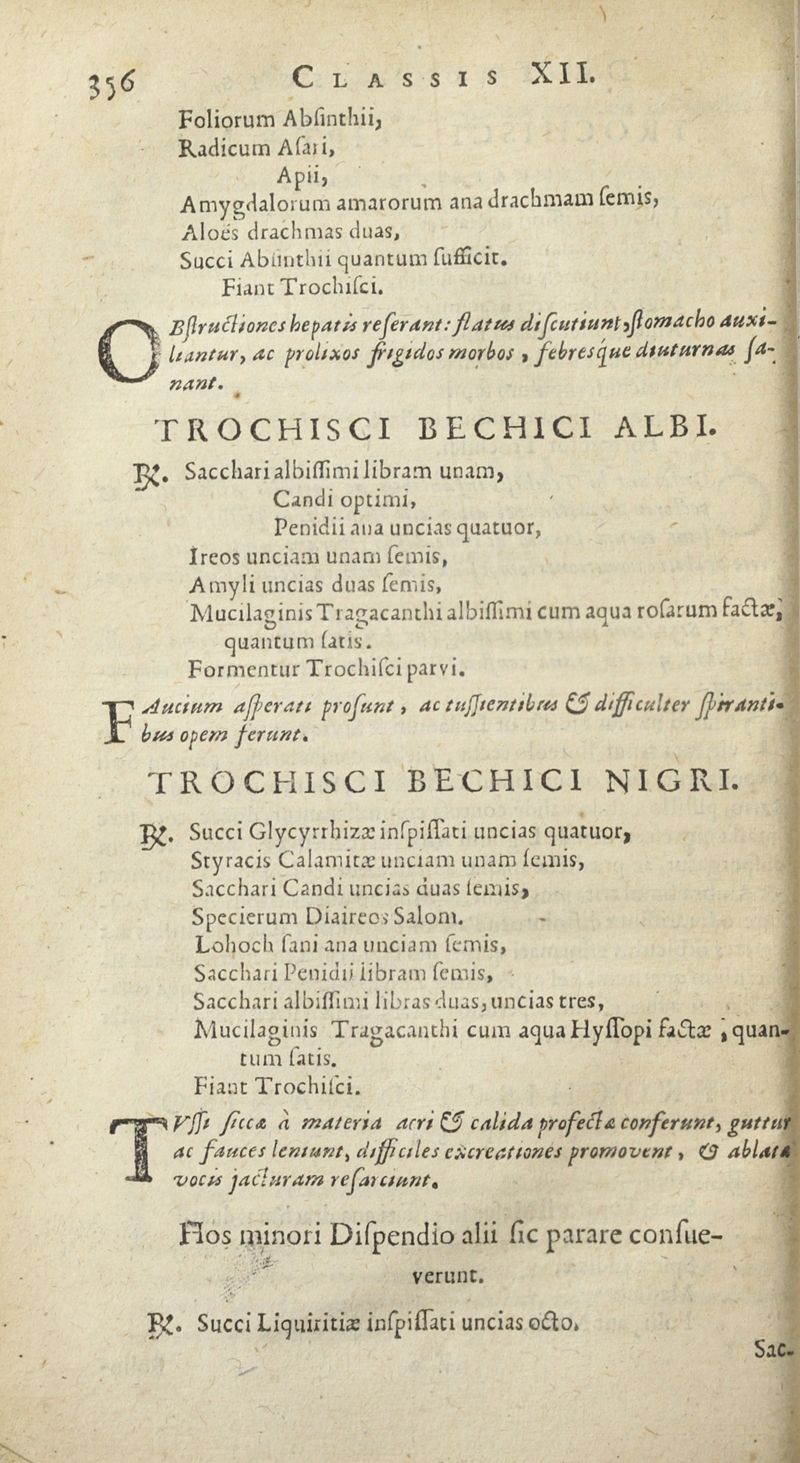 356 CLASSIS XII.
Foliorum Abſinthii,
Radicum Aſari,
Apii,
Amygdalorum amarorum ana drachmam ſemis,
Aloës drachmas duas,
Succi Abſinthii quantum ſufficit.
Fiant Trochiſci.
OBſtructiones hepatis reſerant: flatus diſcutiunt, ſtomacho auxi-
liantur, ac prolixos frigidos morbos, febresque diuturnas ſa-
nant.
TROCHISCI BECHICI ALBI.
℞. Sacchari albiſſimi libram unam,
Candi optimi,
Penidii ana uncias quatuor,
Ireos unciam unam ſemis,
Amyli uncias duas ſemis,
Mucilaginis Tragacanthi albiſſimi cum aqua roſarum factæ,
quantum ſatis.
Formentur Trochiſci parvi.
FAucium aſperati proſunt, ac tuſſientibus & difficulter ſpiranti-
bus opem ferunt.
TROCHISCI BECHICI NIGRI.
℞. Succi Glycyrrhizæ inſpiſſati uncias quatuor,
Styracis Calamitæ unciam unam ſemis,
Sacchari Candi uncias duas ſemis,
Specierum Diaireos Salom.
Lohoch ſani ana unciam ſemis,
Sacchari Penidii libram ſemis,
Sacchari albiſſimi libras duas, uncias tres,
Mucilaginis Tragacanthi cum aqua Hyſſopi factæ, quan-
tum ſatis.
Fiant Trochiſci.
TVſſi ſiccæ à materia acri & calida profectæ conferunt, guttur
ac fauces leniunt, difficiles excreationes promovent, & ablatæ
vocis jacturam reſarciunt.
Hos minori Diſpendio alii ſic parare conſue-
verunt.
℞. Succi Liquiritiæ inſpiſſati uncias octo,
Sac-